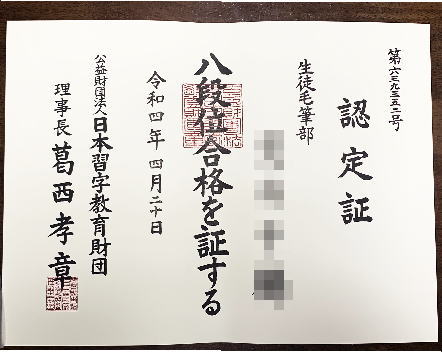 第六三九三五二号
認定証
生徒毛筆部
八段位合格を証する
令和四年四月二十日
公益財団法人日本習字教育財団
理事長 葛西孝章